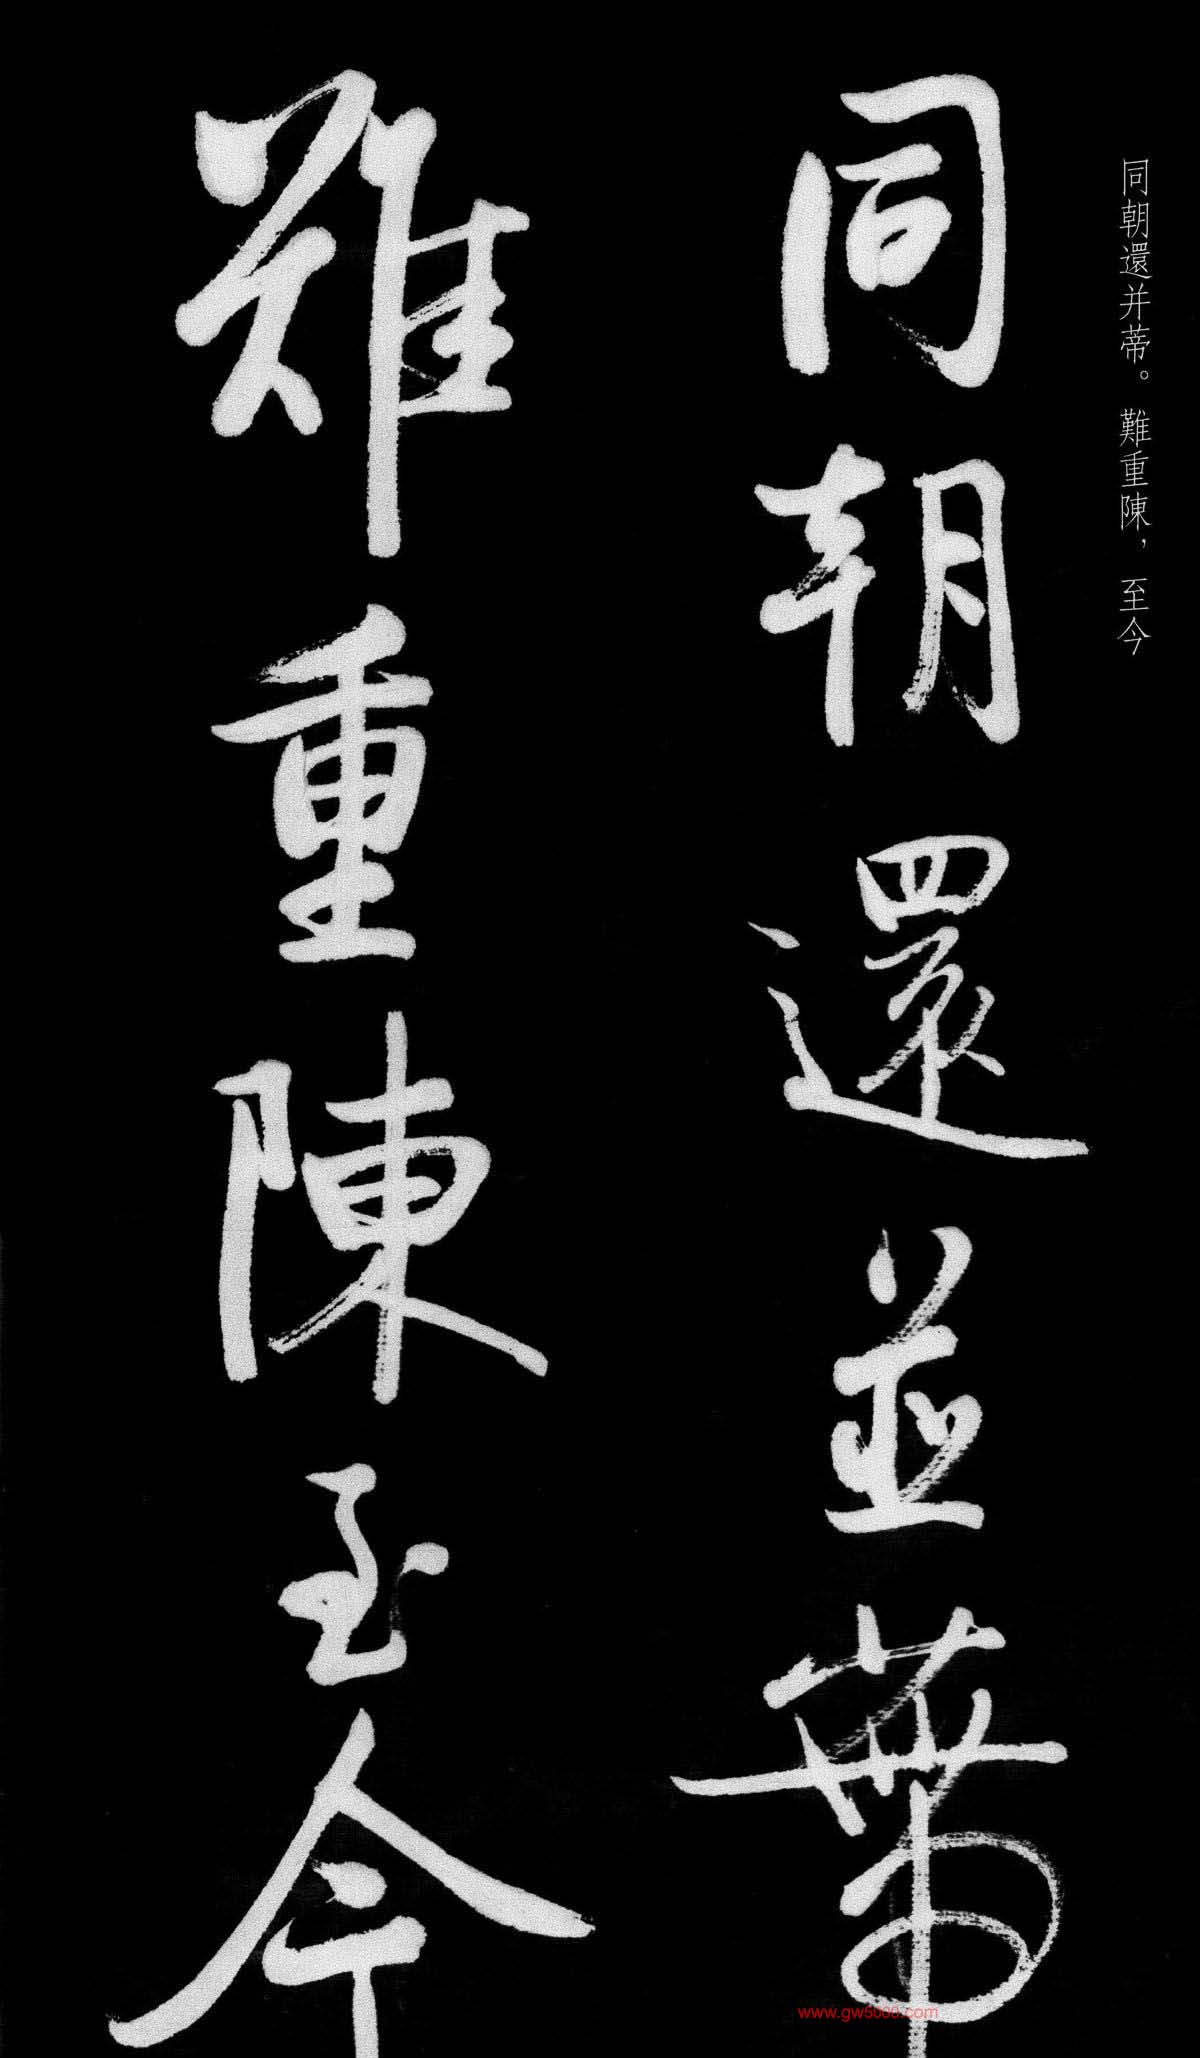 同朝還并蒂。難重陳，至今
同朝還並蔕
難重陳至今
www.gw5000.com